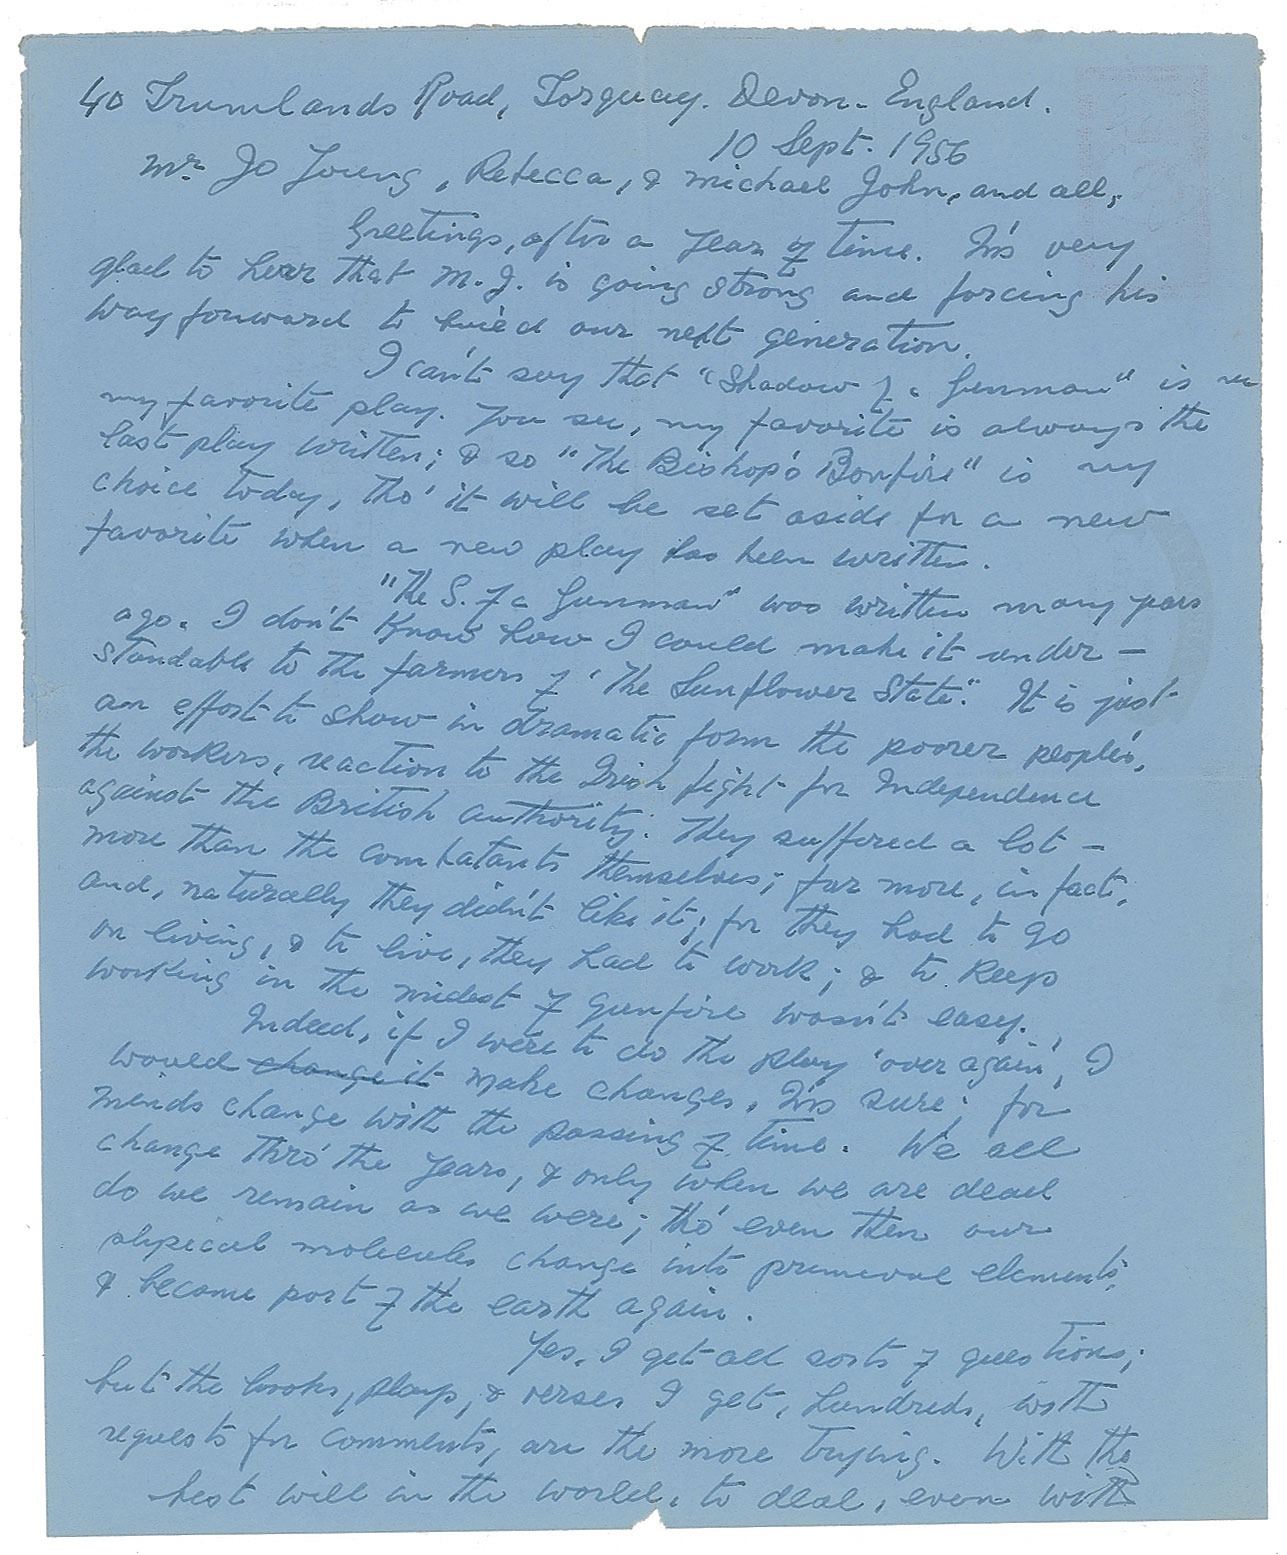 40 Trumlands Road, Torquay. Devon. England.
10 Sept. 1956
Mr Jo Young, Rebecca, & Michael John, and all,
Greetings, after a year of time. I'm very
glad to hear that M.J. is going strong and forcing his
way forward to build our next generation.
I can't say that "Shadow of a Gunman" is
my favorite play. You see, my favorite is always the
last play written; & so "The Bishop's Bonfire" is my
choice today, tho' it will be set aside for a new
favorite when a new play has been written.
"The S. of a Gunman" was written many years
ago. I don't know how I could make it under-
standable to the farmers of "The Sunflower State". It is just
an effort to show in dramatic form the poorer people's,
the workers, reaction to the Irish fight for Independence
against the British authority. They suffered a lot -
more than the combatants themselves; far more, in fact,
and, naturally they didn't like it; for they had to go
on living, & to live, they had to work; & to keep
working in the midst of gunfire wasn't easy.
Indeed, if I were to do the play 'over again', I
would change it make changes, I'm sure; for
minds change with the passing of time. We all
change thro' the years, & only when we are dead
do we remain as we were; tho' even then our
physical molecules change into primeval elements,
& become part of the earth again.
Yes, I get all sorts of questions;
but the books, plays, & verses I get, hundreds, with
requests for comments, are the more trying. With the
best will in the world, to deal, even with